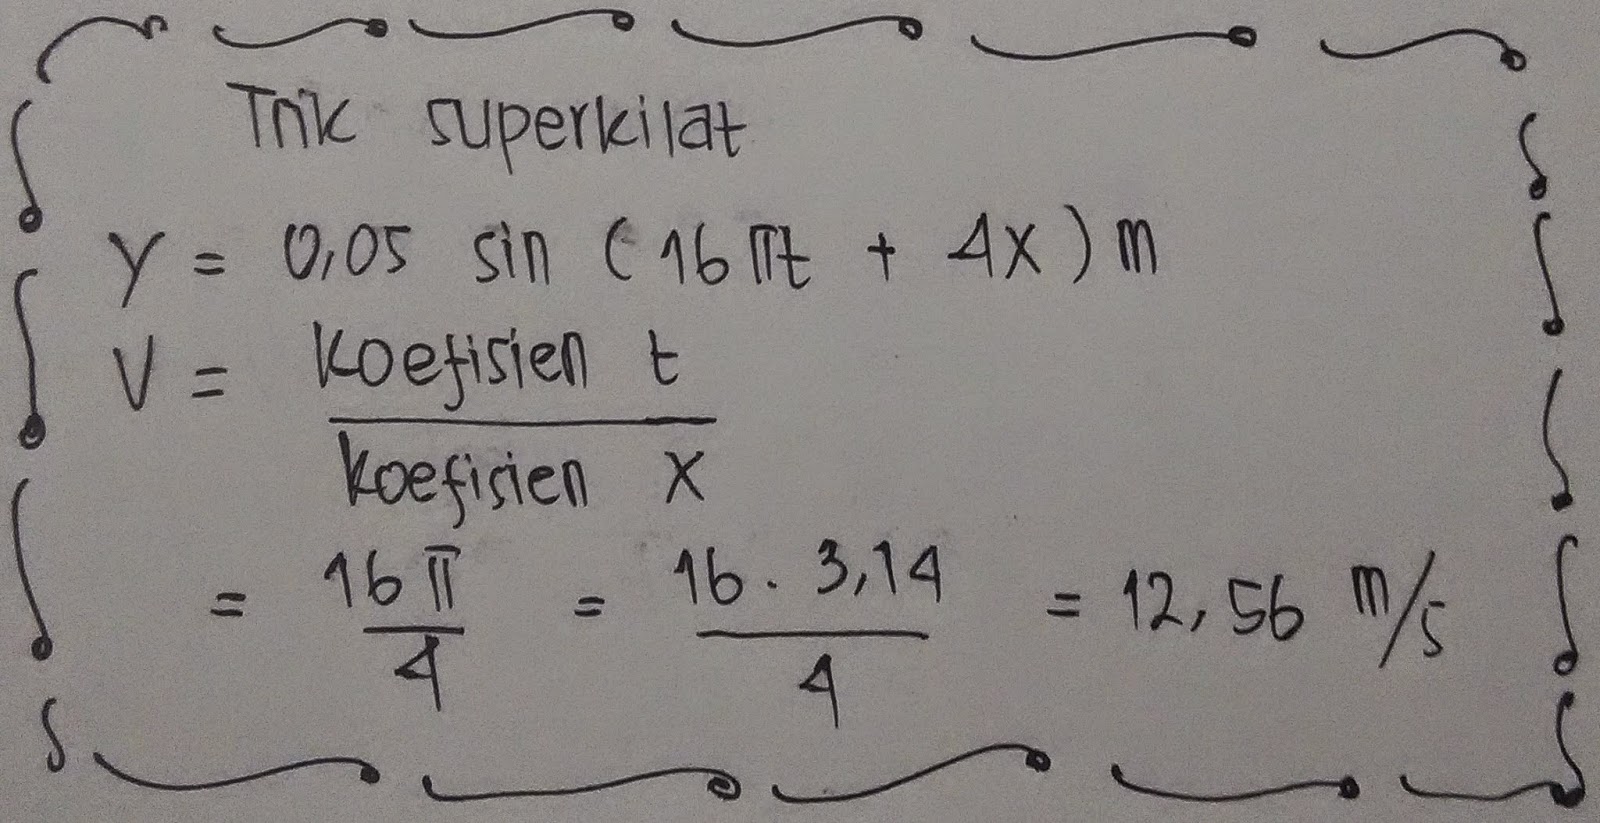 Trik superkilat
Y = 0,05 sin (16πt + 4x) m
V = koefisien t
koefisien x
= 16π = 16 . 3,14 = 12,56 m/s
4 4